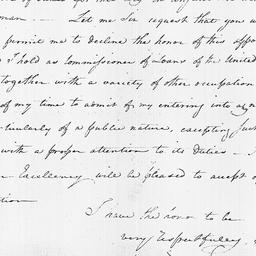 man — Let me Sir request that you w
permit me to decline the honor of this appo
I hold as Commissioner of Loans of the United
together with a variety of other occupation
of my time to admit of my entering into any
ticularly of a public nature, excepting such
with a proper attention to its Duties —
Excellency will be pleased to accept
tion
I have the honor to be
very respectfully